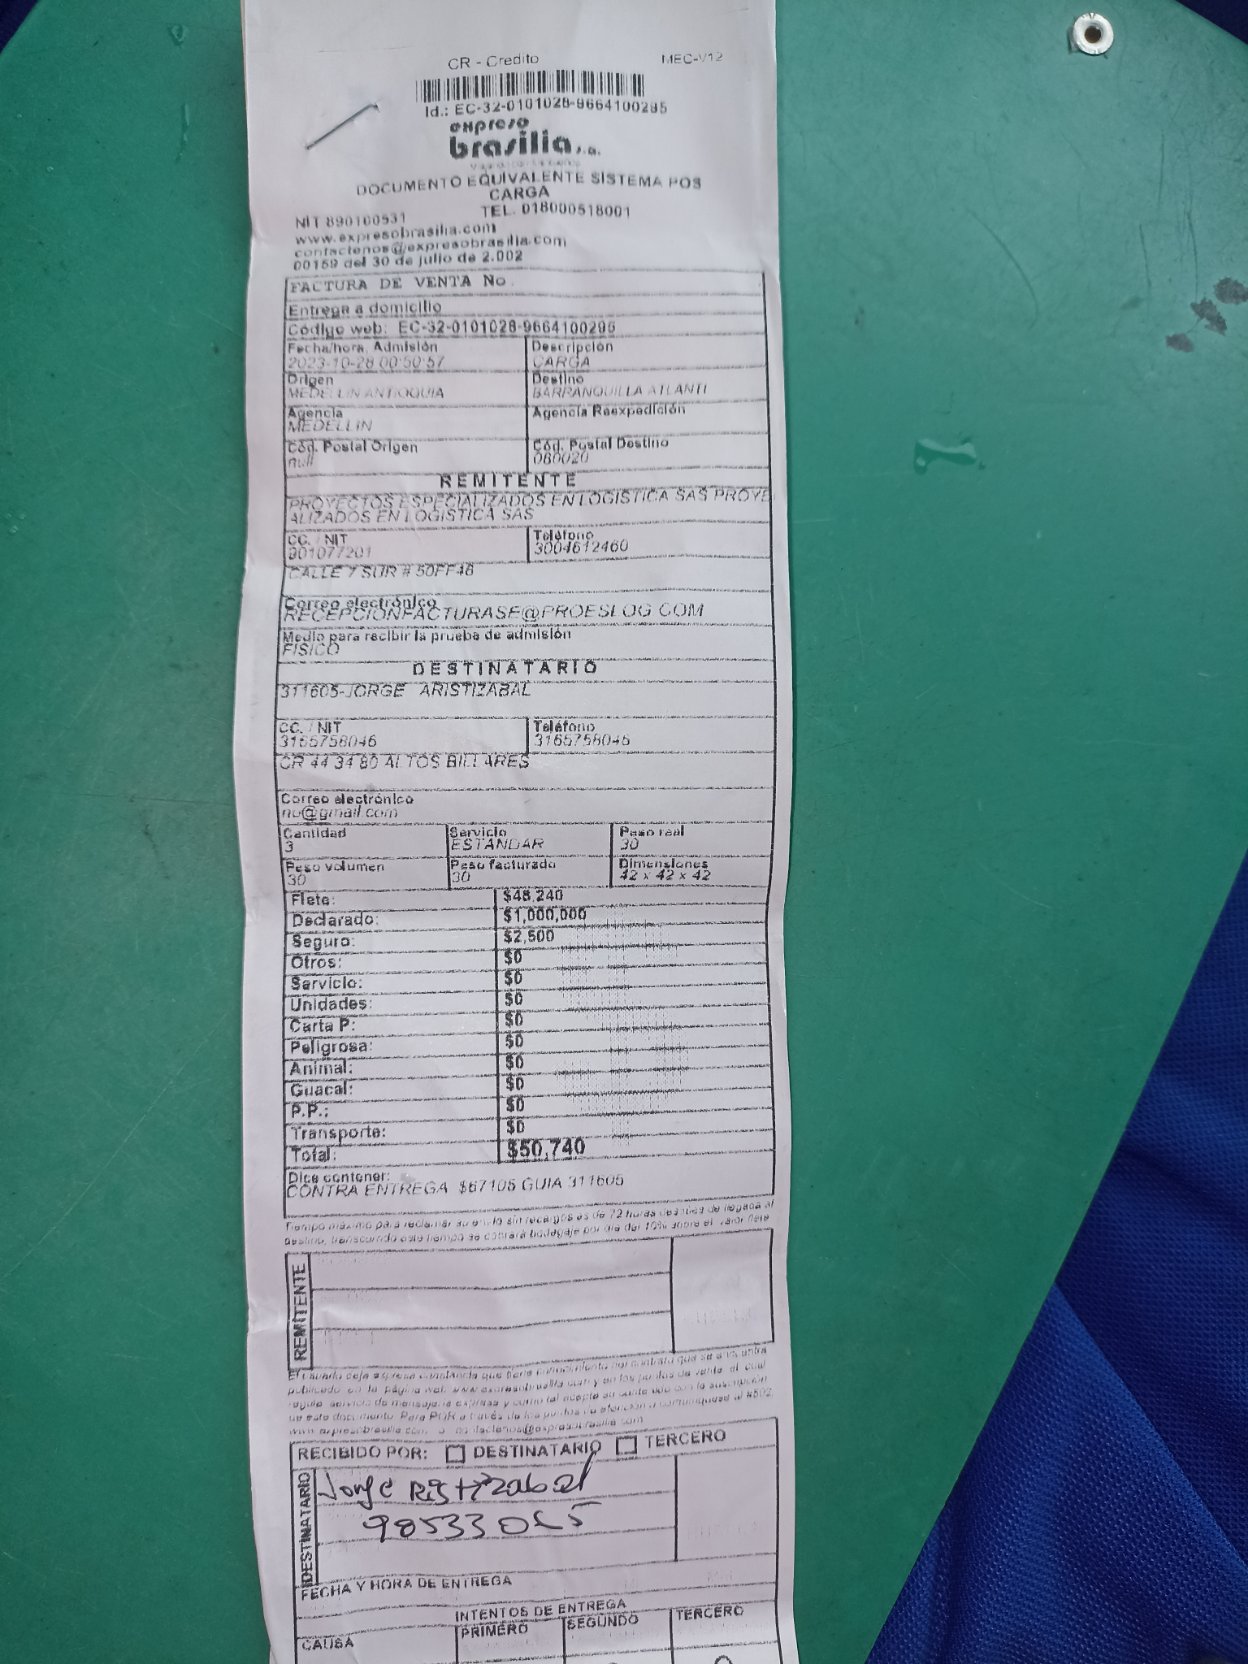 CR - Credito MEC-V12
Id.: EC-32-0101028-9664100295
expreso
brasilia s.a.
DOCUMENTO EQUIVALENTE SISTEMA POS
CARGA
NIT 890100531 TEL. 018000518001
www.expresobrasilia.com
contactenos@expresobrasilia.com
00159 del 30 de julio de 2.002
FACTURA DE VENTA No.
Entrega a domicilio
Código web: EC-32-0101028-9664100295
Fecha/hora. Admisión Descripción
2023-10-28 00:50:57 CARGA
Origen Destino
MEDELLIN ANTIOQUIA BARRANQUILLA ATLANTI
Agencia Agencia Reexpedición
MEDELLIN
Cód. Postal Origen Cód. Postal Destino
null 080020
REMITENTE
PROYECTOS ESPECIALIZADOS EN LOGISTICA SAS PROYE
ALIZADOS EN LOGISTICA SAS
CC. / NIT Teléfono
901077201 3004612460
CALLE 7 SUR # 50FF46
Correo electrónico
RECEPCIONFACTURASE@PROESLOG.COM
Medio para recibir la prueba de admisión
FISICO
DESTINATARIO
311605-JORGE ARISTIZABAL
CC. / NIT Teléfono
3165758046 3165758045
CR 44 34 80 ALTOS BILLARES
Correo electrónico
no@gmail.com
Cantidad Servicio Peso real
3 ESTANDAR 30
Peso volumen Peso facturado Dimensiones
30 30 42 x 42 x 42
Flete: $48,240
Declarado: $1,000,000
Seguro: $2,500
Otros: $0
Servicio: $0
Unidades: $0
Carta P: $0
Peligrosa: $0
Animal: $0
Guacal: $0
P.P.: $0
Transporte: $0
Total: $50,740
Dice contener:
CONTRA ENTREGA $67105 GUIA 311605
Tiempo máximo para reclamar su envío sin recargos es de 72 horas después de llegada al
destino, transcurrido este tiempo se cobrará bodegaje por día del 10% sobre el valor flete
REMITENTE
El usuario deja expresa constancia que tiene conocimiento del contrato que se encuentra
publicado en la página web www.expresobrasilia.com y en los puntos de venta, el cual
regula servicio de mensajería expresa y como tal acepta su contenido con la suscripción
de este documento. Para PQR a través de los puntos de atención o comuníquese al #502,
www.expresobrasilia.com o contactenos@expresobrasilia.com
RECIBIDO POR: DESTINATARIO TERCERO
DESTINATARIO
Jorge Ristizabal
FECHA Y HORA DE ENTREGA
INTENTOS DE ENTREGA
CAUSA PRIMERO SEGUNDO TERCERO